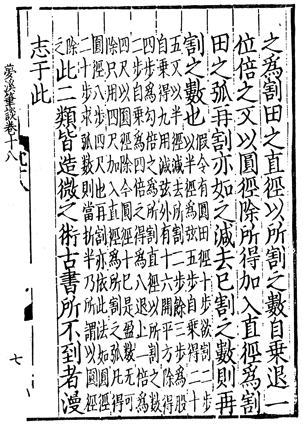 之爲割田之直徑以所割之數自乘退一
位倍之又以圓徑除所得加入直徑爲割
田之弧再割亦如之減去已割之數則再
割之數也
假令有圓田徑十步欲割二
步以半徑爲弦五步自乘得二十
五又以半徑減去所割二步餘三步爲股
自乘得九用減弦外有十六開平方除得
四步爲勾倍之爲所割直徑以所割之數
二步自乘爲四倍之得爲八退上一位爲
四尺以圓徑除今圓徑十已是盈數无可
除只用四尺加入直徑爲所割之弧凡得
圓徑八步四尺也再割亦依此法如圓徑
二十步求弧數則當折半乃所謂以圓徑
除之
此二類皆造微之術古書所不到者漫
志于此
夢溪筆談卷十八
七